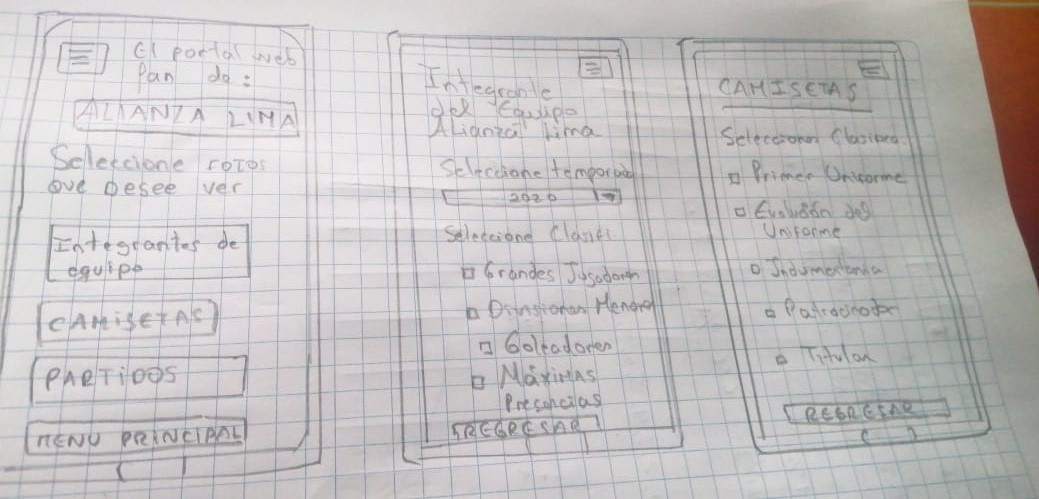 El portal web
Fan de:
ALIANZA LIMA
Seleccione rotos
que Desee ver
Integrantes de
equipo
CAMISETAS
PARTIDOS
MENU PRINCIPAL
Integrante
del Equipo
Alianza Lima
Seleccione temporada
2020
Seleccione Clasifi
Grandes Jugadores
Divisiones Menores
Goleadores
Máximas
Presencias
REGRESAR
CAMISETAS
Seleccionar
Primer Uniforme
Evolución del
Uniforme
Indumentaria
Patrocinador
Titular
REGRESAR